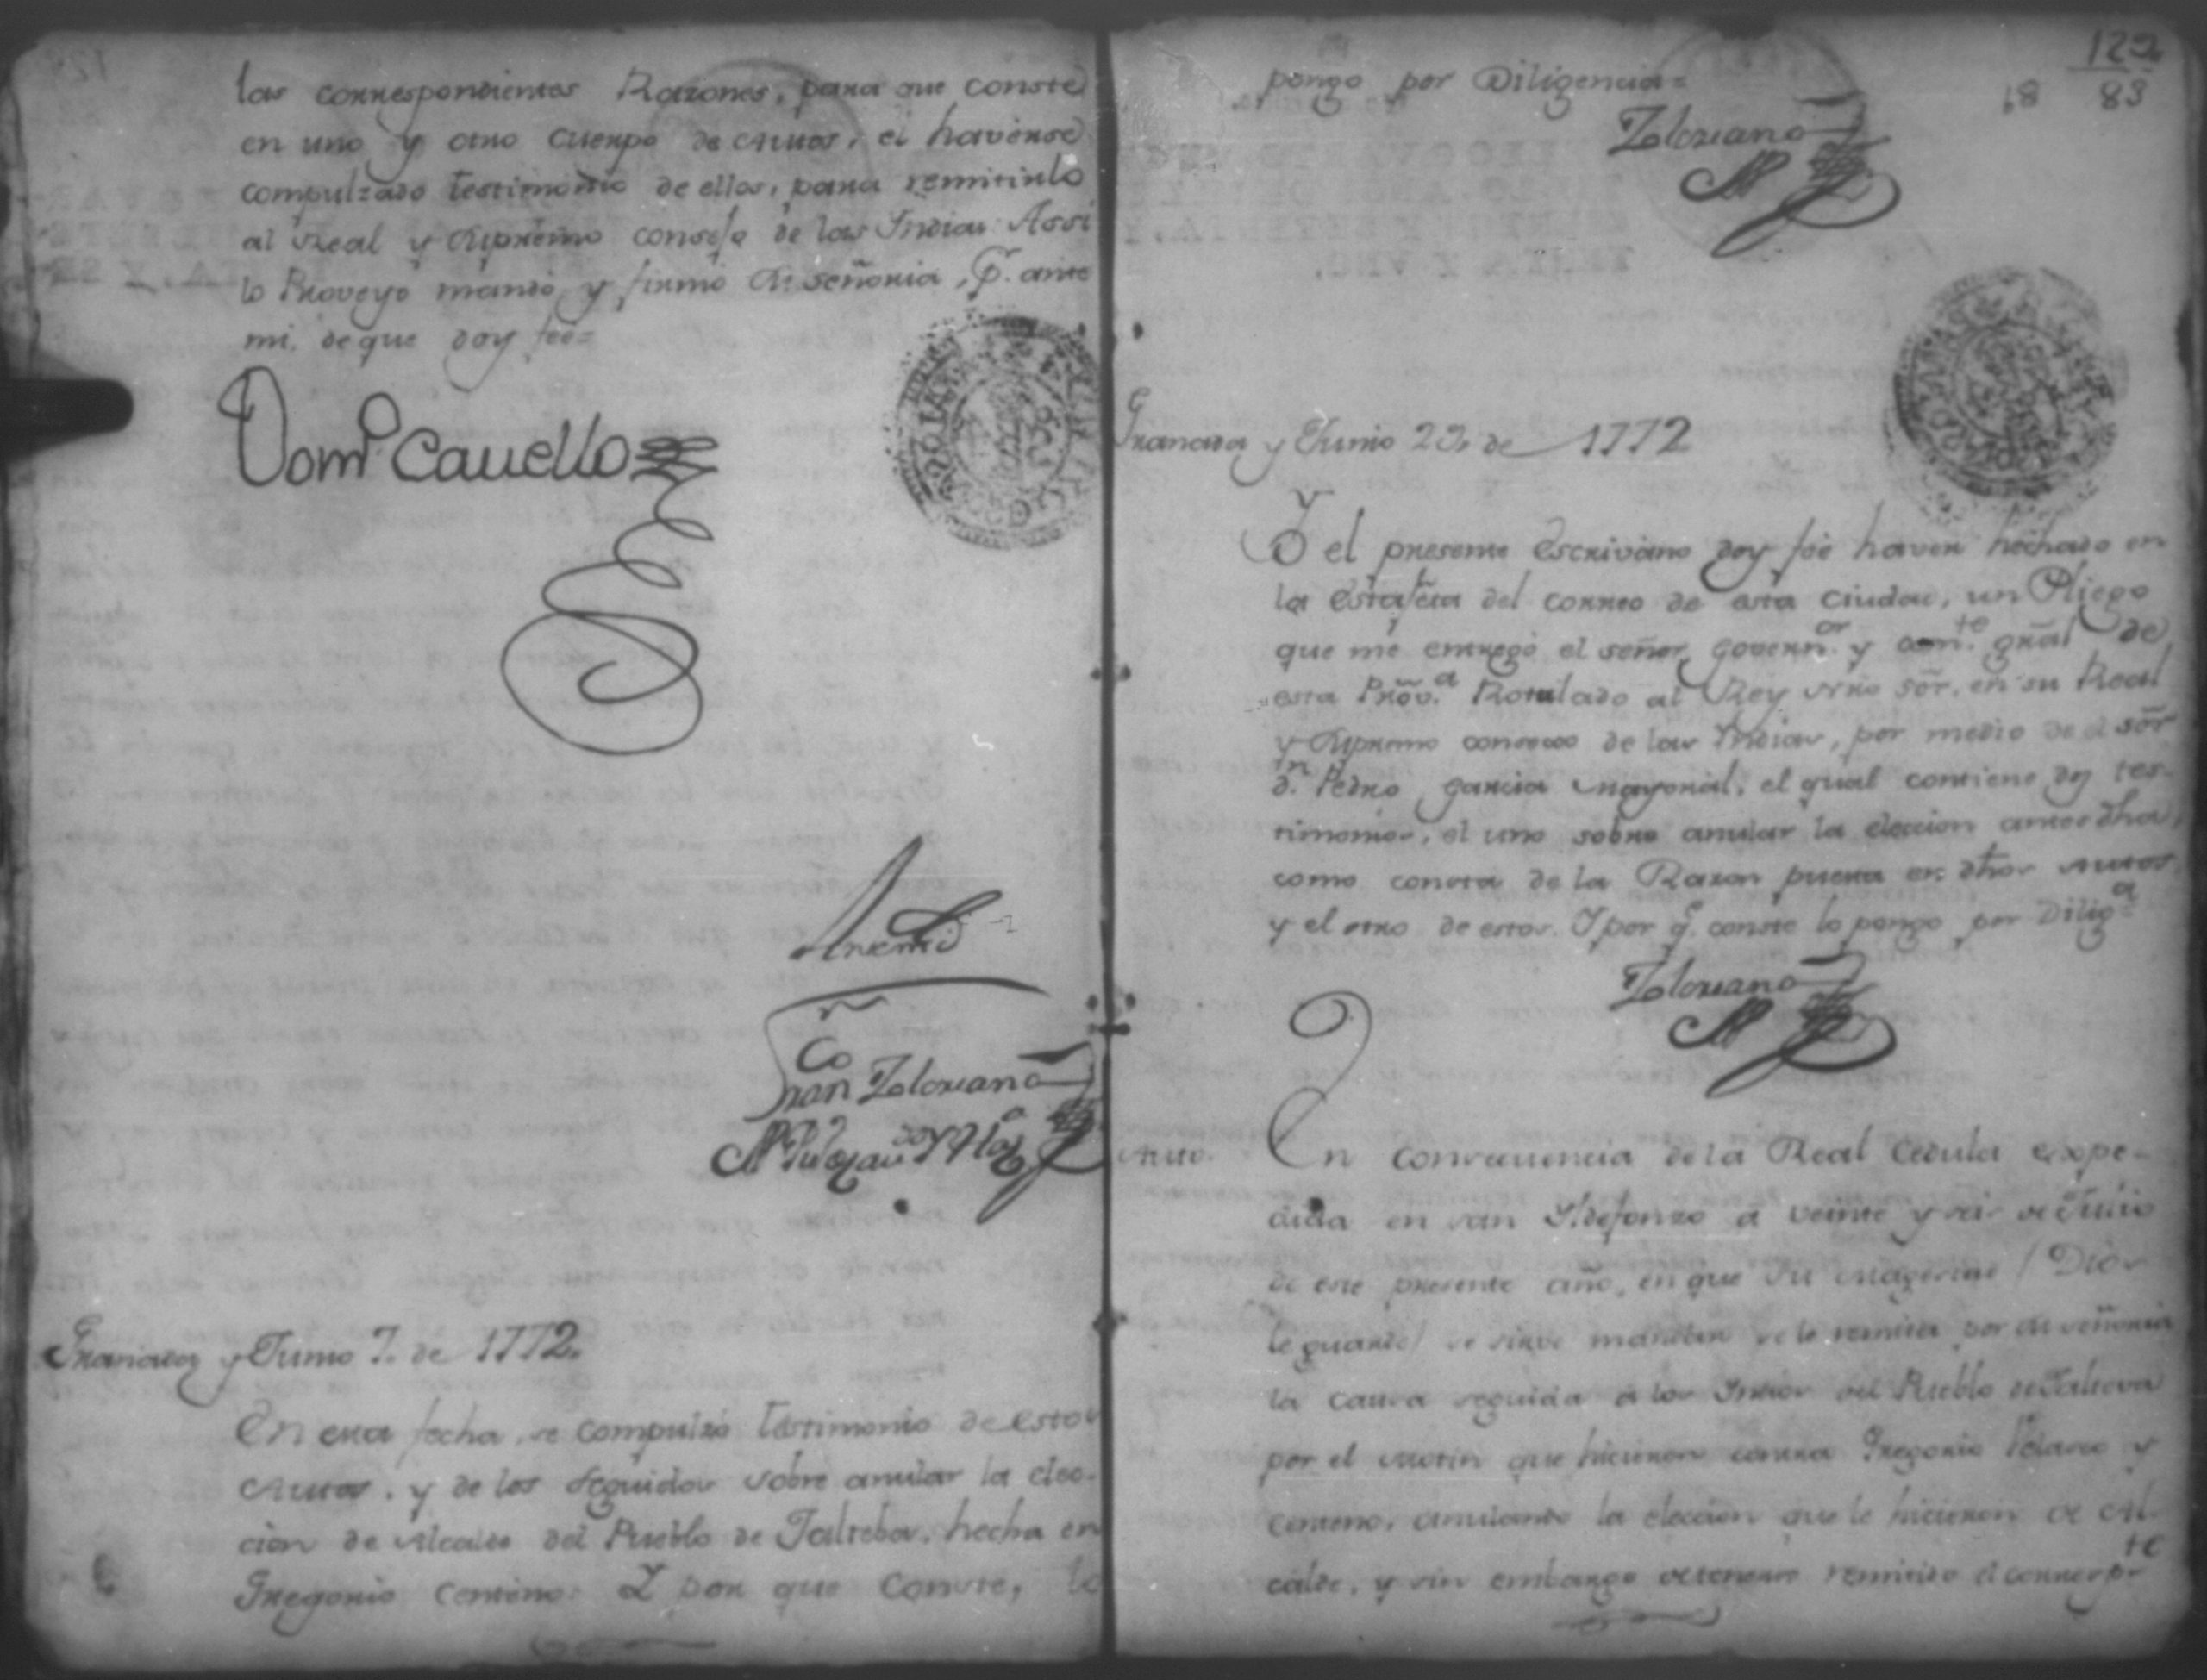 las correspondientes Razones, para que conste
en uno y otro cuerpo de Autos, el haverse
compulzado testimonio de ellos, para remitirlo
al Real y Supremo consejo de las Indias Assi
lo Proveyó mandó y firmó Su Señoria, Pr. ante
mi. de que doy feé=
Domo. Cavello
Antemi
Fran Zoloriano
Granada y Junio 7. de 1772.
En esta fecha, se compulzó testimonio de estos
Autos, y de los seguidos sobre anular la elec-
cion de Alcalde del Pueblo de Jalteba, hecha en
Gregorio Centeno. Y por que Conste, lo
122
83
81
pongo por Diligencia=
Zoloriano
Granada y Junio 23. de 1772
Yo el presente Escrivano doy feé haver hechado en
la Estafeta del correo de esta Ciudad, un Pliego
que me entregó el señor Governor. y comte. gñal de
esta Prov.a Rotulado al Rey Nro Sõr. en su Real
y Supremo consexo de las Indias, por medio de el sõr
dn. Pedro Garcia Mayoral, el qual contiene dos tes-
timonios, el uno sobre anular la eleccion antes dha,
como consta de la Razon puesta en dhos Autos
y el otro de estos. Y por q. conste lo pongo por Dilig.a
Zoloriano
Auto.
En consecuencia de la Real Cedula expe-
dida en San Yldefonzo a veinte y seis de Julio
de este presente año, en que Su Magestad (Dios
le guarde) se sirve mandar se le remita por su señoria
la causa seguida a los Indios del Pueblo de Jalteva
por el motin que hicieron contra Gregorio Polario y
Centeno, anulando la eleccion que le hicieron de Al-
calde, y sin embargo de tenerse remitido el correspte